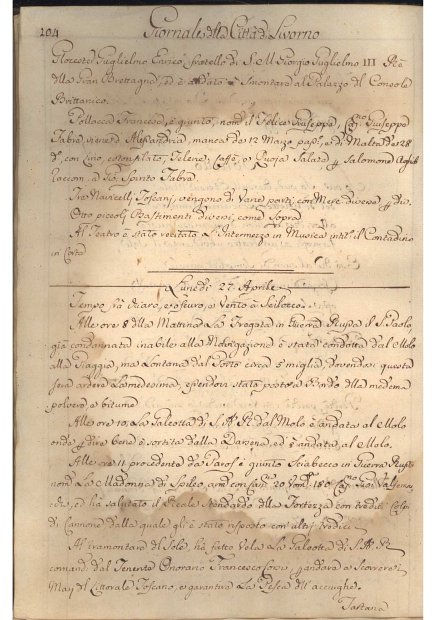 104 Giornale della Città di Livorno
Glocester Guglielmo Enrico fratello di S. M. Giorgio Guglielmo III Rè
della Gran Brettagna, ed è andato a smontare al Palazzo del Console
Brittanico.
Pollacca Francese, è giunto, nom.ta il Felice Giuseppe, Cap.no Giuseppe
Fabre, viene d' Alessandria, manca de 12 Marzo pas.o, e di Malta de 28
d.o, con Lino, coton filato, Telerie, Caffè, e Quoja Salate p. Salomone
e Spirito Fabre.
Tre Navicelli Toscani, vengono di Varie parti, con Merc. diverse p. div.
Otto piccoli Bastimenti diversi, come Sopra
Al Teatro è stato recitato L'Intermezzo in Musica intit.o il Contadino
in Corte
Lunedi 27. Aprile
Tempo frà chiaro, e oscuro, e Vento a Scilocco.
Alle ore 8 della Mattina La Fregata in Guerra Russa il S. Paolo,
già condannata inabile alla Navigazione è stata condotta dal Molo
alla Piaggia, ma Lontana dal Porto circa 5 miglia, dovendosi questa
sera ardere La medesima, essendovi stata posta a Bordo della medema
polvere, e bitume
Alle ore 10, La Galeotta di S. A. R. dal Molo è andata al Molo
onde p. dire bene è sortita dalla Darsena, ed è andata al Molo.
Alle ore 11 procedente da Paros è giunto Sciabecco in Guerra Russo
nom.to La Madonna di con Can.ni 20 Uom. 180 Cap.no
ed ha salutato il Reale Stendardo della Fortezza con tredici Colpi
di Cannone dalla quale gli è stato risposto con altri tredici
Al tramontare del Sole, hà fatto Vela La Galeotta di S. A. R.
comand. dal Tenente Onorario Francesco p. andare a Scorrere i
Mari del Littorale Toscano, e garantire La Pesca dell' acciughe.
Tartana